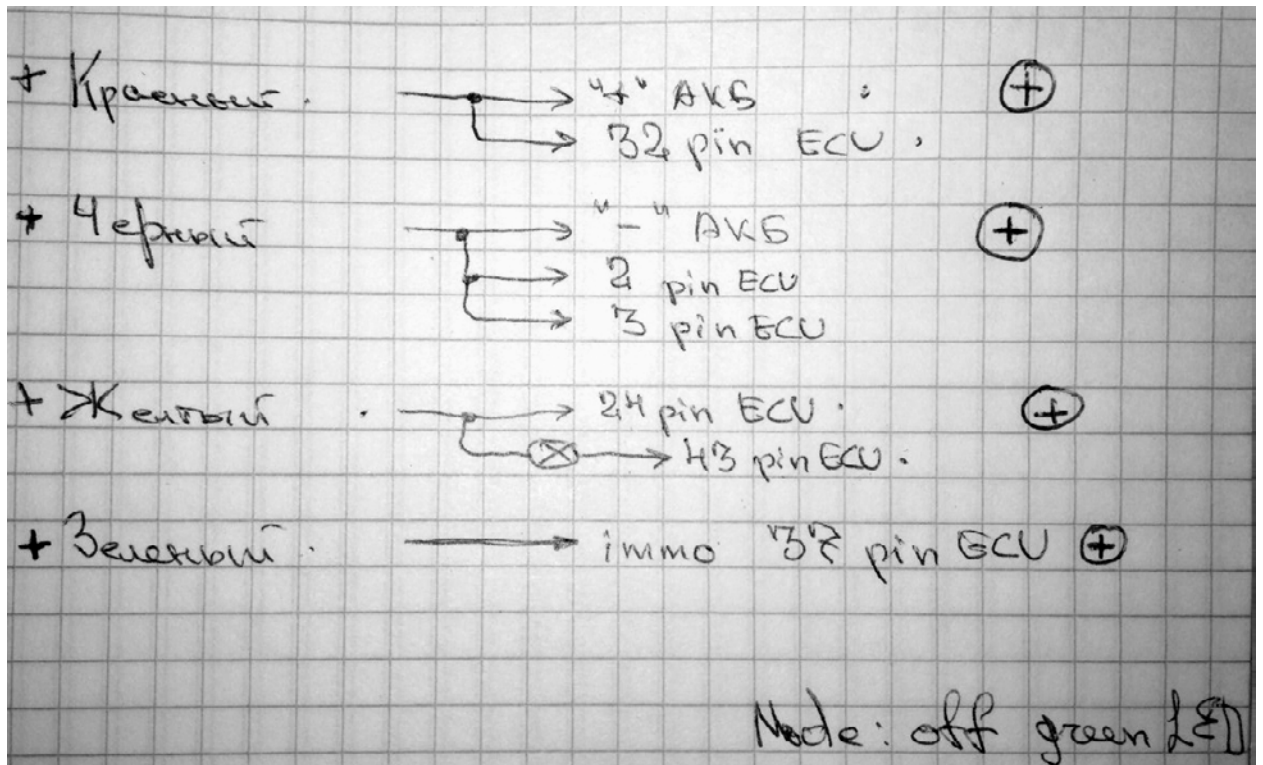 + Красный. "+" АКБ ⊕
32 pin ECU.
+ Черный "-" АКБ ⊕
2 pin ECU
3 pin ECU
+ Желтый 24 pin ECU. ⊕
43 pin ECU.
+ Зеленый. immo 37 pin ECU ⊕
Mode: off green LED